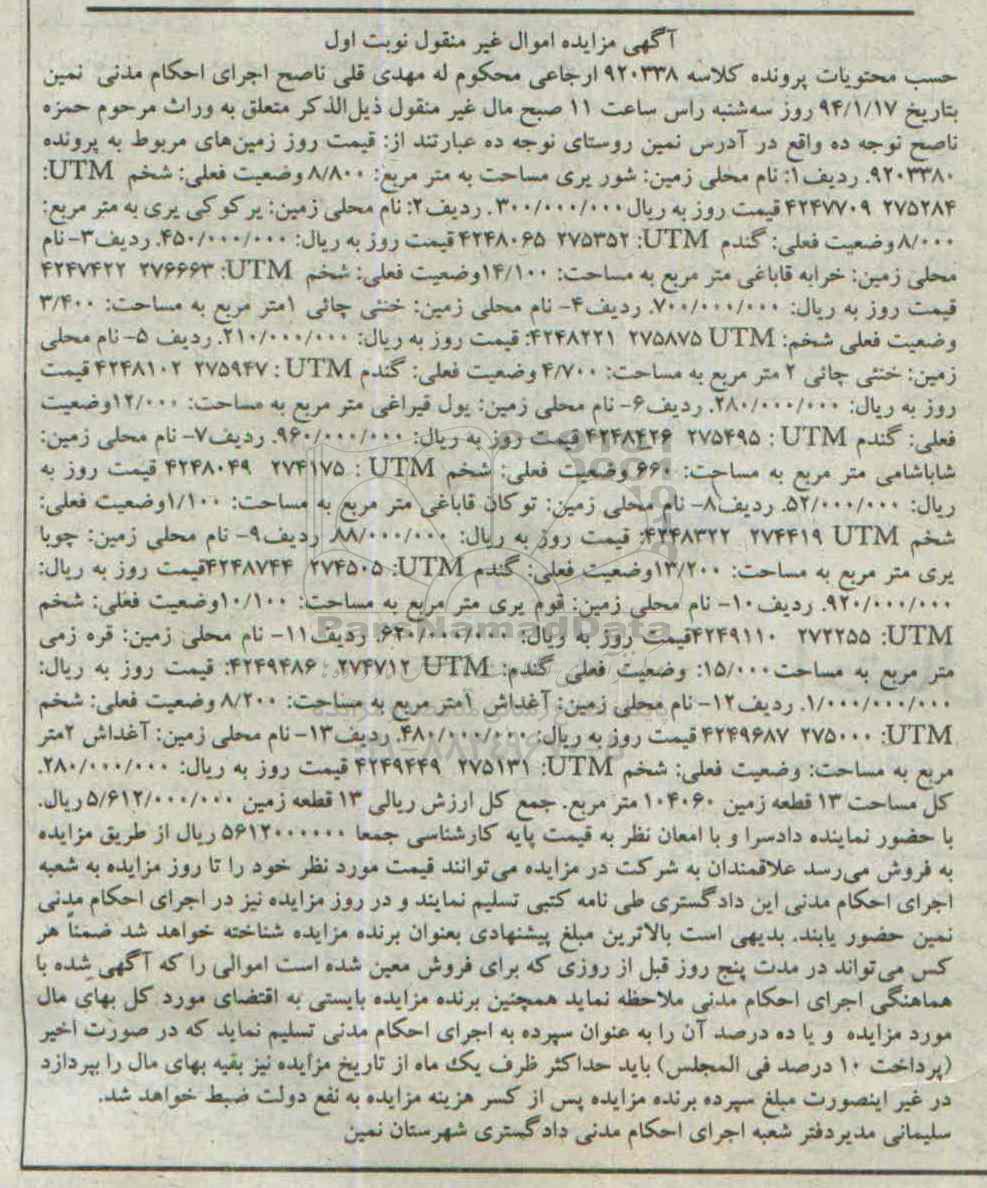 آگهی مزایده اموال غیر منقول نوبت اول
حسب محتویات پرونده کلاسه ۹۲۰۳۳۸ ارجاعی محکوم له مهدی قلی ناصح اجرای احکام مدنی نمین
بتاریخ ۹۴/۱/۱۷ روز سه‌شنبه راس ساعت ۱۱ صبح مال غیر منقول ذیل‌الذکر متعلق به وراث مرحوم حمزه
ناصح نوجه ده واقع در آدرس نمین روستای نوجه ده عبارتند از: قیمت روز زمین‌های مربوط به پرونده
۹۲۰۳۳۸۰. ردیف۱: نام محلی زمین: شور یری مساحت به متر مربع: ۸/۸۰۰ وضعیت فعلی: شخم UTM:
۲۷۵۲۸۴ ۴۲۴۷۷۰۹ قیمت روز به ریال ۳۰۰/۰۰۰/۰۰۰. ردیف۲: نام محلی زمین: یرکوکی یری به متر مربع:
۸/۰۰۰ وضعیت فعلی: گندم UTM: ۲۷۵۳۵۲ ۴۲۴۸۰۶۵ قیمت روز به ریال: ۴۵۰/۰۰۰/۰۰۰. ردیف۳- نام
محلی زمین: خرابه قاباغی متر مربع به مساحت: ۱۴/۱۰۰وضعیت فعلی: شخم UTM: ۲۷۶۶۶۳ ۴۲۴۷۴۲۲
قیمت روز به ریال: ۷۰۰/۰۰۰/۰۰۰. ردیف۴- نام محلی زمین: خنثی چائی ۱متر مربع به مساحت: ۳/۴۰۰
وضعیت فعلی شخم: UTM ۲۷۵۸۷۵ ۴۲۴۸۲۲۱: قیمت روز به ریال: ۲۱۰/۰۰۰/۰۰۰. ردیف ۵- نام محلی
زمین: خنثی چائی ۲ متر مربع به مساحت: ۴/۷۰۰ وضعیت فعلی: گندم UTM : ۲۷۵۹۴۷ ۴۲۴۸۱۰۲ قیمت
روز به ریال: ۲۸۰/۰۰۰/۰۰۰. ردیف۶- نام محلی زمین: یول قیراغی متر مربع به مساحت: ۱۲/۰۰۰وضعیت
فعلی: گندم UTM : ۲۷۵۴۹۵ ۴۲۴۸۴۲۶ قیمت روز به ریال: ۹۶۰/۰۰۰/۰۰۰. ردیف۷- نام محلی زمین:
شاباشامی متر مربع به مساحت: ۶۶۰ وضعیت فعلی: شخم UTM : ۲۷۴۱۷۵ ۴۲۴۸۰۴۹ قیمت روز به
ریال: ۵۲/۰۰۰/۰۰۰. ردیف۸- نام محلی زمین: توکان قاباغی متر مربع به مساحت: ۱/۱۰۰وضعیت فعلی:
شخم UTM ۲۷۴۴۱۹ ۴۲۴۸۳۲۲: قیمت روز به ریال: ۸۸/۰۰۰/۰۰۰. ردیف۹- نام محلی زمین: چوبا
یری متر مربع به مساحت: ۱۳/۲۰۰وضعیت فعلی: گندم UTM: ۲۷۴۵۰۵ ۴۲۴۸۷۴۴قیمت روز به ریال:
۹۲۰/۰۰۰/۰۰۰. ردیف۱۰- نام محلی زمین: قوم یری متر مربع به مساحت: ۱۰/۱۰۰وضعیت فعلی: شخم
UTM: ۲۷۲۲۵۵ ۴۲۴۹۱۱۰قیمت روز به ریال: ۶۲۰/۰۰۰/۰۰۰. ردیف۱۱- نام محلی زمین: قره زمی
متر مربع به مساحت۱۵/۰۰۰: وضعیت فعلی گندم: UTM ۲۷۴۷۱۲ ۴۲۴۹۴۸۶: قیمت روز به ریال:
۱/۰۰۰/۰۰۰/۰۰۰. ردیف۱۲- نام محلی زمین: آغداش ۱متر مربع به مساحت: ۸/۲۰۰ وضعیت فعلی: شخم
UTM: ۲۷۵۰۰۰ ۴۲۴۹۶۸۷ قیمت روز به ریال: ۴۸۰/۰۰۰/۰۰۰. ردیف۱۳- نام محلی زمین: آغداش ۲متر
مربع به مساحت: وضعیت فعلی: شخم UTM: ۲۷۵۱۳۱ ۴۲۴۹۴۴۹ قیمت روز به ریال: ۲۸۰/۰۰۰/۰۰۰.
کل مساحت ۱۳ قطعه زمین ۱۰۴۰۶۰ متر مربع. جمع کل ارزش ریالی ۱۳ قطعه زمین ۵/۶۱۲/۰۰۰/۰۰۰ ریال.
با حضور نماینده دادسرا و با امعان نظر به قیمت پایه کارشناسی جمعا ۵۶۱۲۰۰۰۰۰۰ ریال از طریق مزایده
به فروش می‌رسد علاقمندان به شرکت در مزایده می‌توانند قیمت مورد نظر خود را تا روز مزایده به شعبه
اجرای احکام مدنی این دادگستری طی نامه کتبی تسلیم نمایند و در روز مزایده نیز در اجرای احکام مدنی
نمین حضور یابند. بدیهی است بالاترین مبلغ پیشنهادی بعنوان برنده مزایده شناخته خواهد شد ضمناً هر
کس می‌تواند در مدت پنج روز قبل از روزی که برای فروش معین شده است اموالی را که آگهی شده با
هماهنگی اجرای احکام مدنی ملاحظه نماید همچنین برنده مزایده بایستی به اقتضای مورد کل بهای مال
مورد مزایده و یا ده درصد آن را به عنوان سپرده به اجرای احکام مدنی تسلیم نماید که در صورت اخیر
(پرداخت ۱۰ درصد فی المجلس) باید حداکثر ظرف یک ماه از تاریخ مزایده نیز بقیه بهای مال را بپردازد
در غیر اینصورت مبلغ سپرده برنده مزایده پس از کسر هزینه مزایده به نفع دولت ضبط خواهد شد.
سلیمانی مدیردفتر شعبه اجرای احکام مدنی دادگستری شهرستان نمین
ParsNamadData